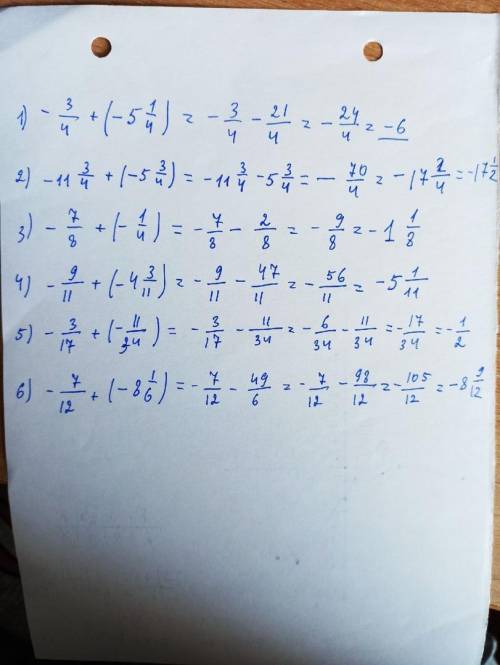 1) - 3/4 + (-5 1/4) = - 3/4 - 21/4 = - 24/4 = -6
2) -11 3/4 + (-5 3/4) = -11 3/4 - 5 3/4 = - 70/4 = -17 2/4 = -17 1/2
3) - 7/8 + (- 1/4) = - 7/8 - 2/8 = - 9/8 = -1 1/8
4) - 9/11 + (-4 3/11) = - 9/11 - 47/11 = - 56/11 = -5 1/11
5) - 3/17 + (- 11/34) = - 3/17 - 11/34 = - 6/34 - 11/34 = - 17/34 = - 1/2
6) - 7/12 + (-8 1/6) = - 7/12 - 49/6 = - 7/12 - 98/12 = - 105/12 = -8 9/12